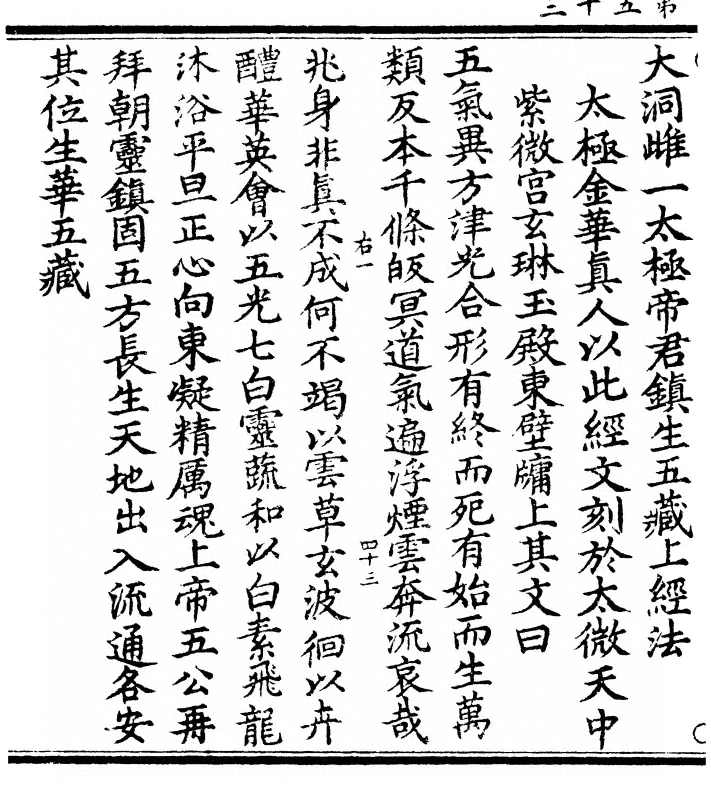 第五十二
大洞雌一太極帝君鎮生五藏上經法
太極金華真人以此經文刻於太微天中
紫微宮玄琳玉殿東壁牖上其文曰
五氣異方津光合形有終而死有始而生萬
類反本千條皈冥道氣遍浮煙雲奔流哀哉
右一
四十三
兆身非真不成何不竭以雲草玄波徊以卉
醴華英會以五光七白靈蔬和以白素飛龍
沐浴平旦正心向東凝精厲魂上帝五公再
拜朝靈鎮固五方長生天地出入流通各安
其位生華五藏